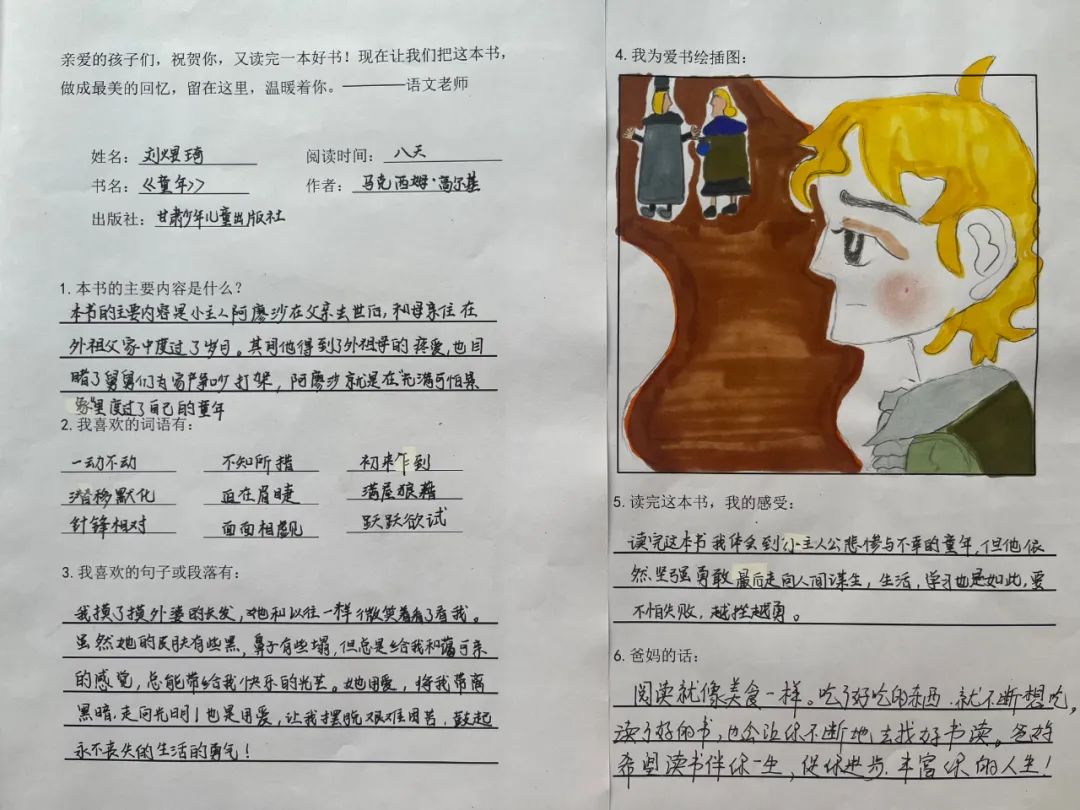 亲爱的孩子们，祝贺你，又读完一本好书！现在让我们把这本书，
做成最美的回忆，留在这里，温暖着你。————语文老师
姓名：刘煜琦 阅读时间：八天
书名：《童年》 作者：马克西姆·高尔基
出版社：甘肃少年儿童出版社
1. 本书的主要内容是什么？
本书的主要内容是小主人阿廖沙在父亲去世后，和母亲住在
外祖父家中度过了岁月。其间他得到了外祖母的疼爱，也目
睹了舅舅们为家产争吵打架，阿廖沙就是在"充满可怕景
象"里度过了自己的童年
2. 我喜欢的词语有：
一动不动 不知所措 初来乍到
潜移默化 迫在眉睫 满屋狼藉
针锋相对 面面相觑 跃跃欲试
3. 我喜欢的句子或段落有：
我摸了摸外婆的长发，她和以往一样微笑着看了看我。
虽然她的皮肤有些黑，鼻子有些塌，但总是给我和蔼可亲
的感觉，总能带给我快乐的光芒。她用爱，将我带离
黑暗，走向光明！也是用爱，让我摆脱艰难困苦，鼓起
永不丧失的生活的勇气！
4. 我为爱书绘插图：
5. 读完这本书，我的感受：
读完这本书我体会到小主人公悲惨与不幸的童年，但他依
然坚强勇敢最后走向人间谋生，生活，学习也是如此，要
不怕失败，越挫越勇。
6. 爸妈的话：
阅读就像美食一样。吃了好吃的东西，就不断想吃，
读了好的书，也会让你不断地去找好书读。爸妈
希望读书伴你一生，促你进步，丰富你的人生！